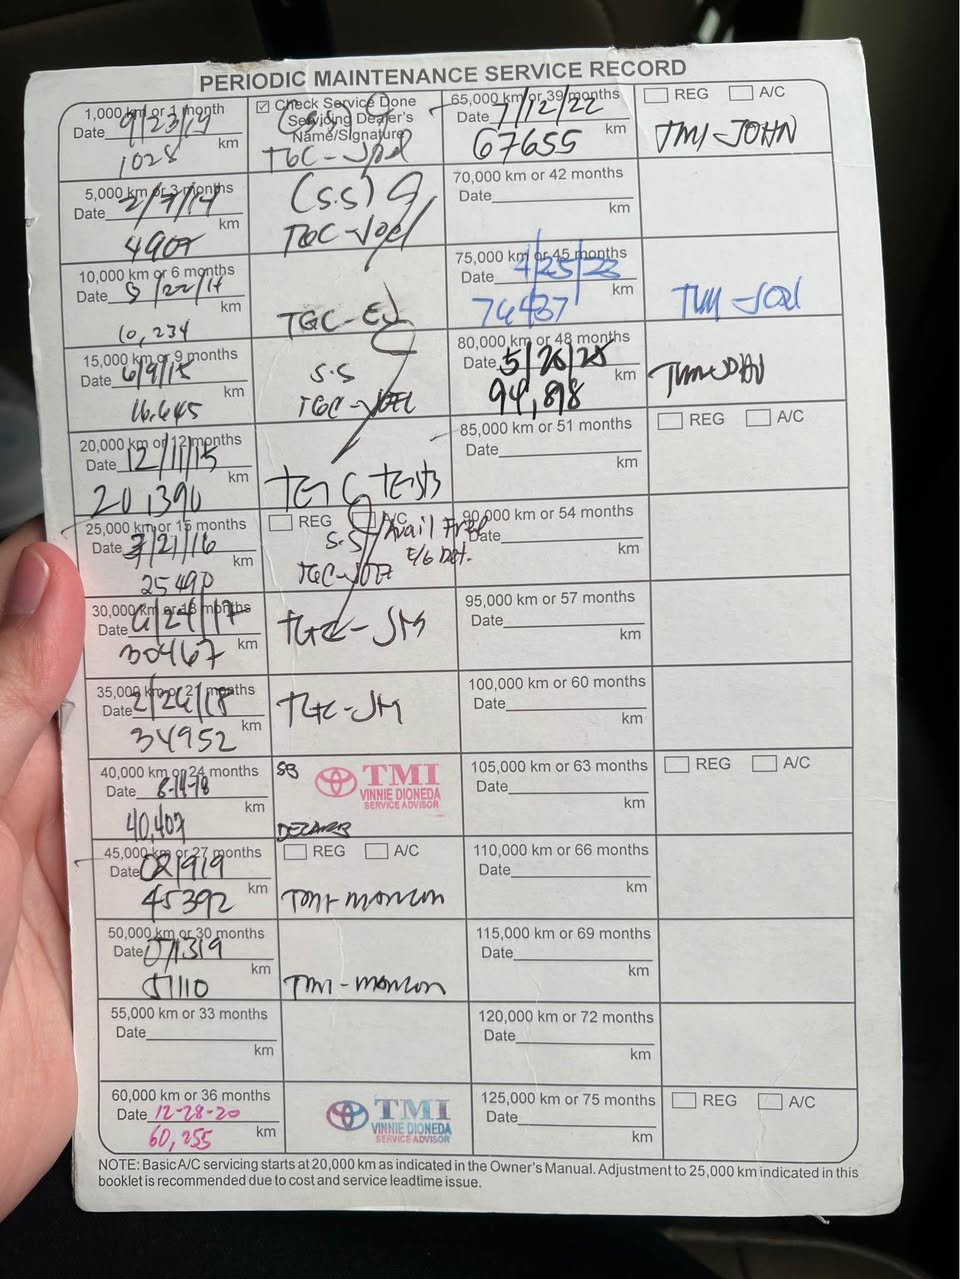 PERIODIC MAINTENANCE SERVICE RECORD
1,000 km or 1 month
Date
1028 km
Check Service Done
Servicing Dealer's
Name/Signature
TGC-Joel
5,000 km or 3 months
Date 2/7/14
km
(S.S)
TGC-Joel
10,000 km or 6 months
Date 8/22/14
10,234
TGC-EJ
15,000 km or 9 months
Date 6/9/15
km
16,645
S.S
TGC-JOEL
20,000 km or 12 months
Date 12/11/15
km
201390
25,000 km or 15 months
Date /21/16
km
REG A/C
S.S Avail Free
E/G Det.
30,000 km or 18 months
Date /17
km
30467
TGC-JM
35,000 km or 21 months
Date 2/26/18
km
34952
TGC-JM
40,000 km or 24 months
Date 8-14-18
km
40,407
SB
TMI
VINNIE DIONEDA
SERVICE ADVISOR
45,000 km or 27 months
Date 021919
km
45392
REG A/C
50,000 km or 30 months
Date 071319
km
51110
TMI-
55,000 km or 33 months
Date
km
60,000 km or 36 months
Date 12-28-20
60,255 km
TMI
VINNIE DIONEDA
SERVICE ADVISOR
65,000 km or 39 months
Date 7/12/22
67655 km
REG A/C
TMI-JOHN
70,000 km or 42 months
Date
km
75,000 km or 45 months
Date 4/25/23
km
76437
80,000 km or 48 months
Date 5/26/25
km
94,898
85,000 km or 51 months
Date
km
REG A/C
90,000 km or 54 months
Date
km
95,000 km or 57 months
Date
km
100,000 km or 60 months
Date
km
105,000 km or 63 months
Date
km
REG A/C
110,000 km or 66 months
Date
km
115,000 km or 69 months
Date
km
120,000 km or 72 months
Date
km
125,000 km or 75 months
Date
km
REG A/C
NOTE: Basic A/C servicing starts at 20,000 km as indicated in the Owner's Manual. Adjustment to 25,000 km indicated in this
booklet is recommended due to cost and service leadtime issue.